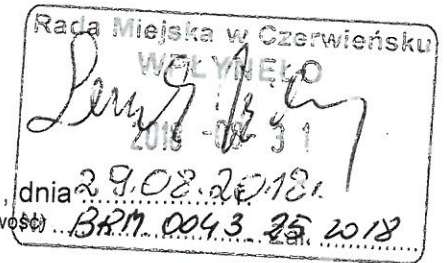 Rada Miejska w Czerwieńsku
WPŁYNĘŁO
2018 -08- 31
, dnia 29.08.2018r.
wość) BRM.0043.25.2018
Zał.